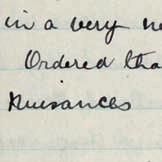 in a very ne
Ordered tha
Nuisances